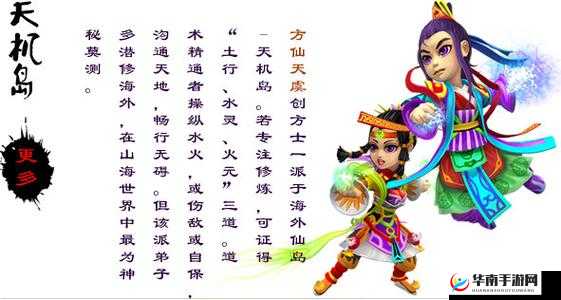 天机岛
更多
方仙天虞创方士一派于海外仙岛
-天机岛。若专注修炼，可证得
“土行、水灵、火元”三道。道
术精通者操纵水火，或伤敌或自保，
沟通天地，畅行无碍。但该派弟子
多潜修海外，在山海世界中最为神
秘莫测。
华南手游网